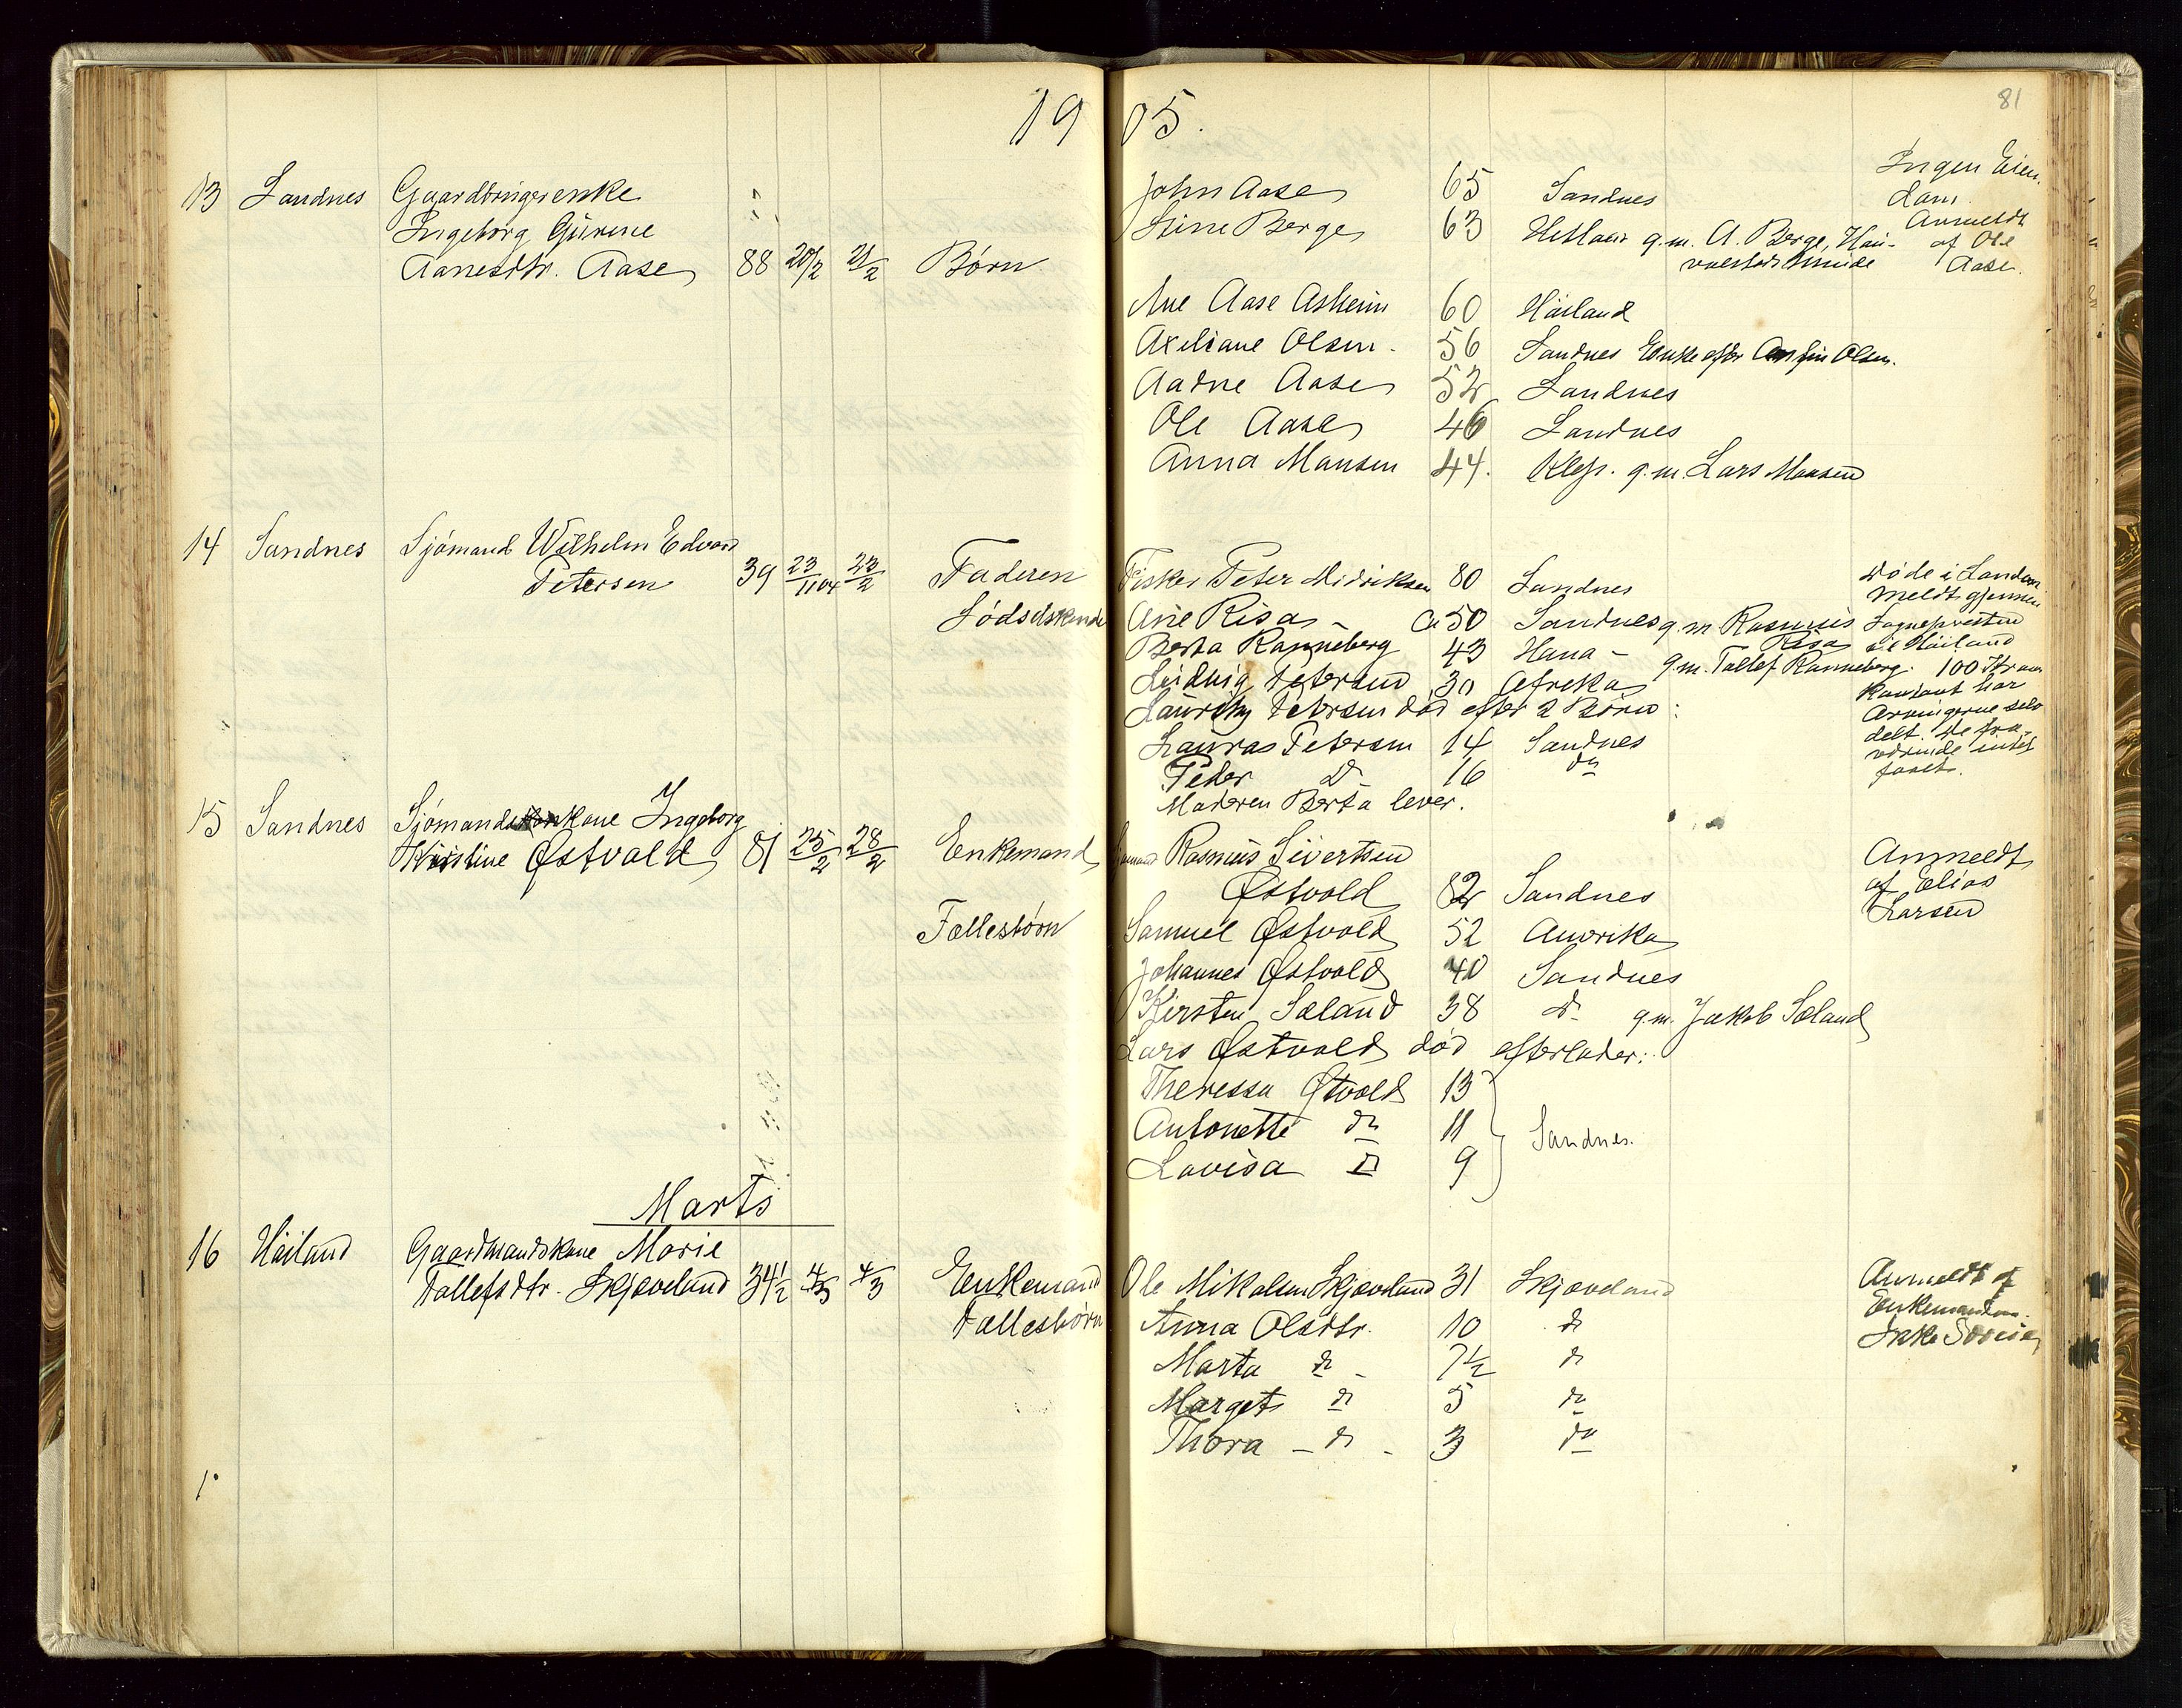 1905.
81
13 Sandnes Gaardbrugerenke
Ingeborg Gurine
Aanestdtr. Aase 88 20/2 21/2 Børn
John Aase 65 Sandnes
Stine Berge 63 Hetland g.m. A. Berge,
Ane Aase Asheim 60 Höiland
Axeliane Olsen 56 Sandnes Enke efter Olsen.
Aadne Aase 52 Sandnes
Ole Aase 46 Sandnes
Anna Mansen 44. Klep. g.m. Lars Maasen
Ingen Eien-
dom
Anmeldt
af Ole
Aase.
14 Sandnes Sjömand Wilhelm Edvard
Petersen 39 23/11 04 23/2 Faderen
Södsdskende
Fisker Peter Midriksen 80 Sandnes
Ane Risa - Ca 50 Sandnes g.m. Rasmus
Risa
Berta Ranneberg 43 Hana - g.m. Tollef Ranneberg.
Ludvig Petersen 30 Afrika
Lauritz Petersen död efter 2 Börn:
Lauras Petersen 14 Sandnes
Peder D 16 do
Moderen Berta lever.
Döde i London
meldt gjennem
Sognepresten
i Höiland
100 Kroner
Kontant har
Arvingerne selv
delt. De fra-
værende intet
faaet.
15 Sandnes Sjömandskone Ingeborg
Kristine Østvold 81 25/2 28/2 Enkemand
Rasmus Sivertsen
Østvold 82 Sandnes
Fællesbörn
Samuel Østvold 52 Amerika
Johannes Østvold 40 Sandnes
Kirsten Sæland 38 D. g.m. Jakob Sæland
Lars Østvold död efterlader:
Theressa Østvold 13
Antonette do 11 Sandnes.
Lovisa D 9
Anmeldt
af Elias
Larsen
Marts
16 Höiland Gaardmandskone Marie
Tallefsdtr. Skjæveland 34½ 4/3 4/3 Enkemand
Fællesbörn
Ole Mikalsen Skjæveland 31 Skjæveland
Anna Olsdtr. 10 do
Marta do - 7½ do
Marget do 5 do
Thora - do - 3 do
Anmeldt af
Enkemanden.
1